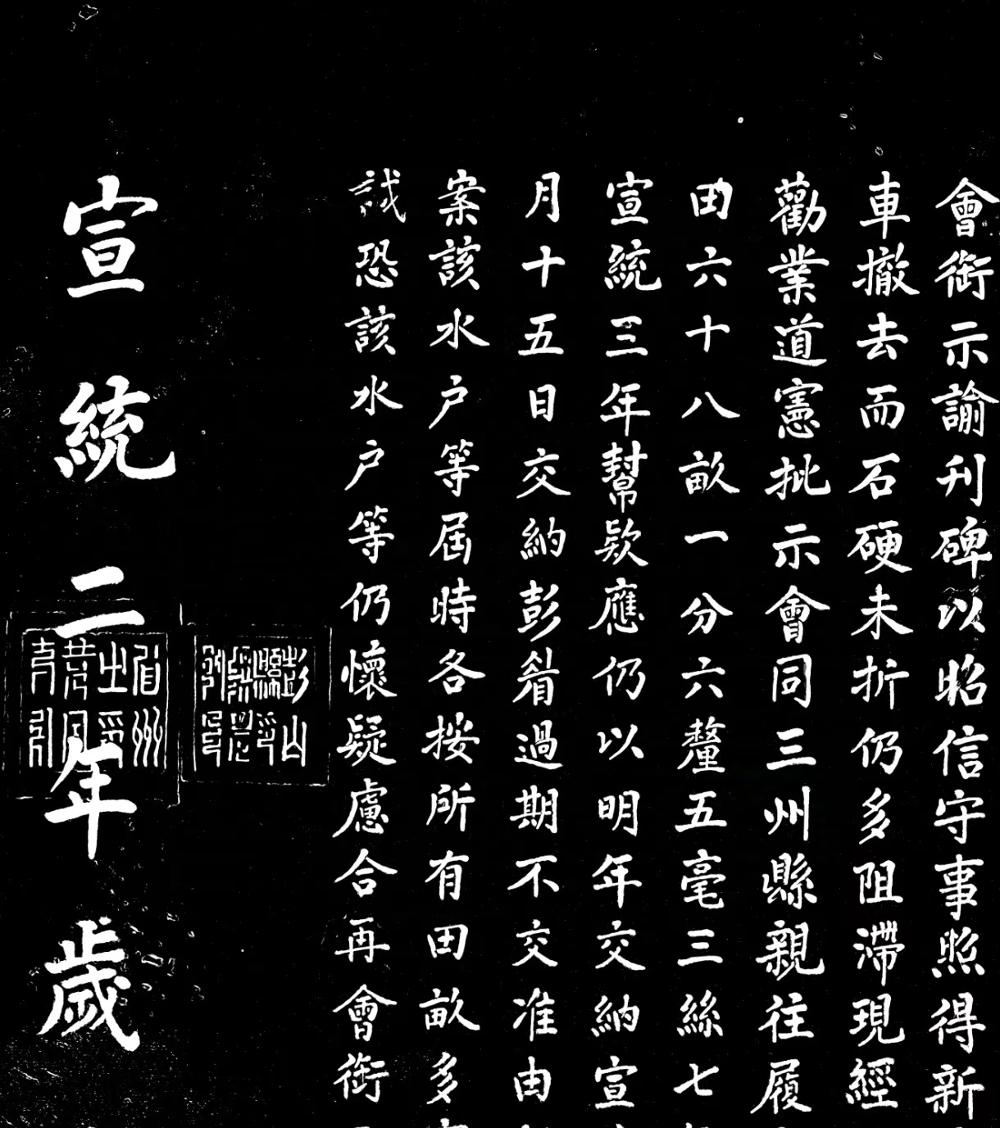 會銜示諭刊碑以昭信守事照得新
車撤去而石硬未折仍多阻滯現經
勸業道憲批示會同三州縣親往履
由六十八畝一分六釐五毫三絲七
宣統三年幫欵應仍以明年交納宣
月十五日交納彭眉過期不交准由
案該水户等屆時各按所有田畝多
試恐該水户等仍懷疑慮合再會銜
彭山縣印
眉州之印
宣統二年歲